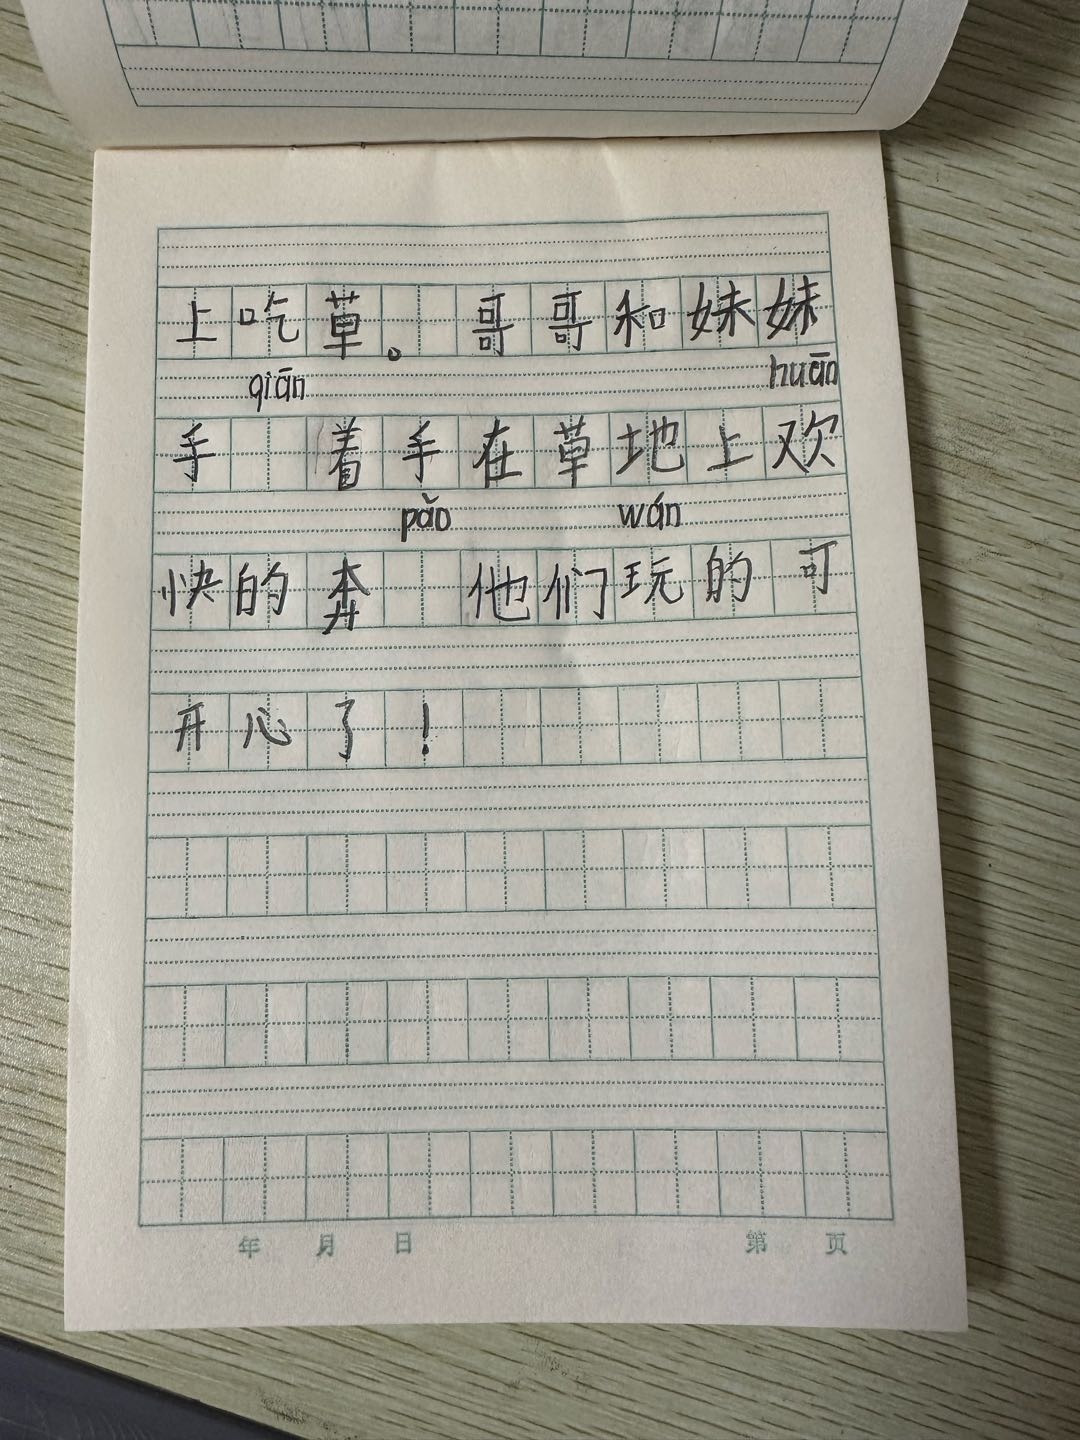 上吃草。哥哥和妹妹
qiān huān
手 着手在草地上欢
pǎo wán
快的奔 他们玩的可
开心了！
年 月 日 第 页